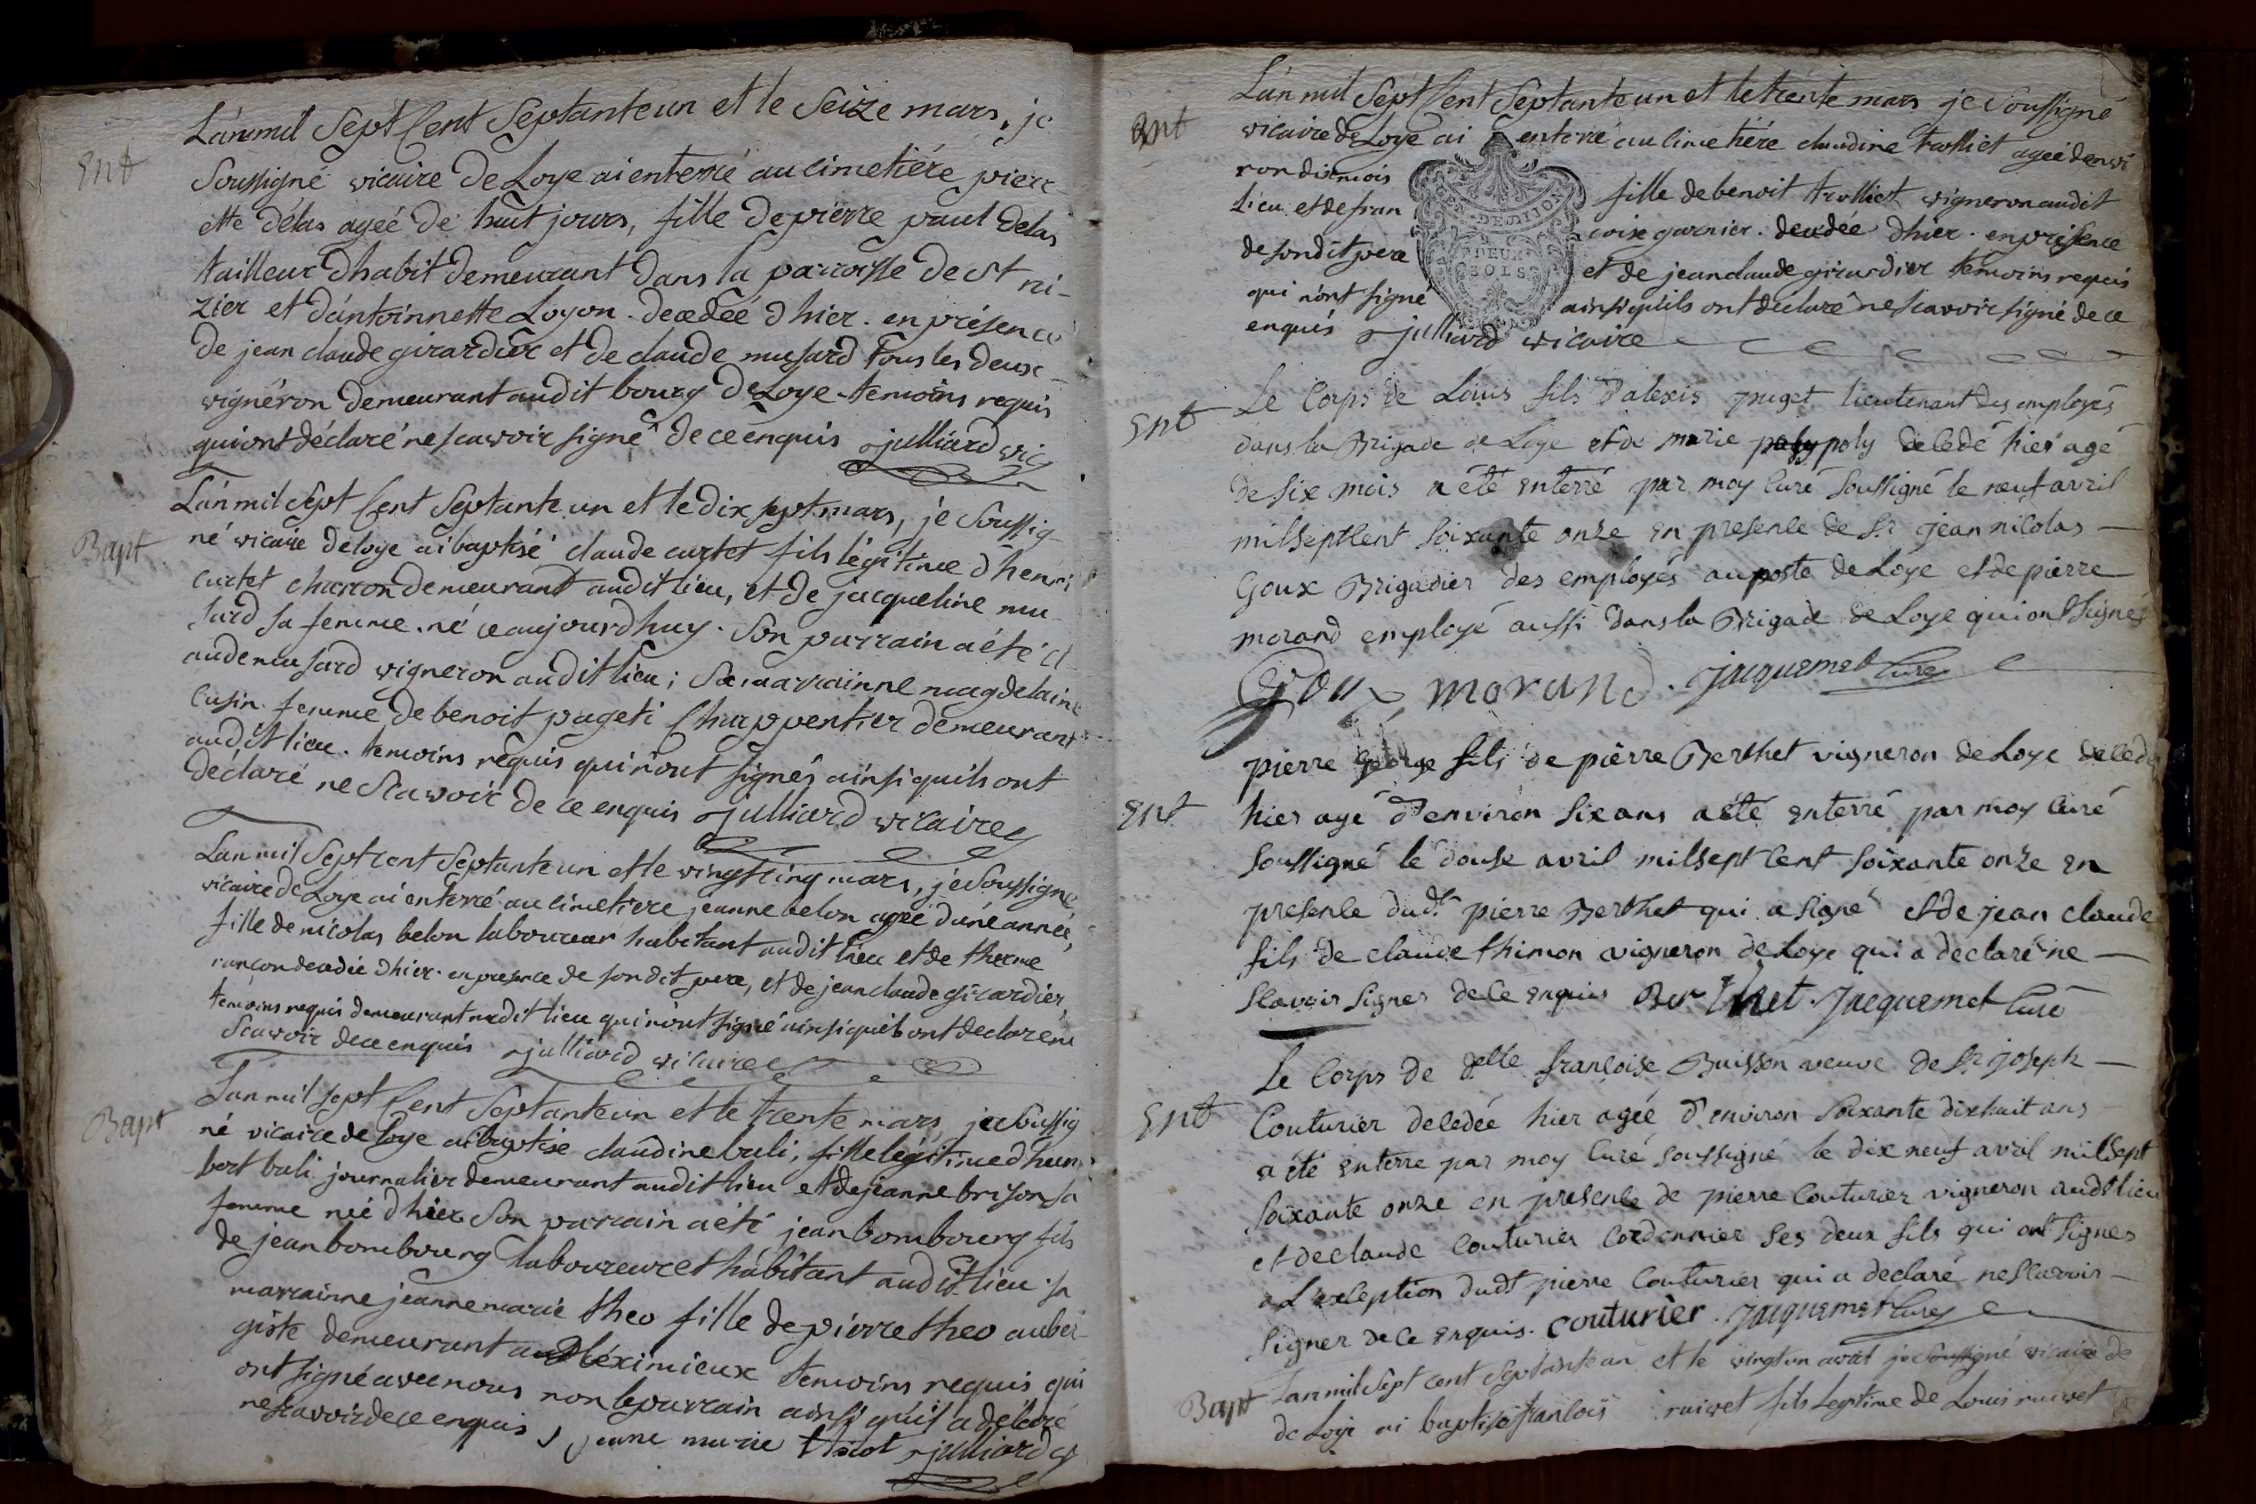 L'an mil Sept Cent Septante un et le Seize mars, je
Ent
Soussigné vicaire de Loye ai enterré au cimetiére pierr
ette délas ageé de huit jours, fille de pierre paul delas
tailleur d'habit demeurant dans la parroisse de St ni-
zier et d'antoinnette Loyon. decedeé d'hier. en présence
de jean claude girardier et de claude musard tous les deux
vignéron demeurant audit bourg de Loye. temoins requis
qui ont déclaré ne scavoir signé de ce enquis julliard vic
L'an mil Sept Cent Septante un et le dix sept mars, je Soussig
Bapt
né vicaire de loye ai baptisé claude curtet fils légitime d'henri
curtet charron demeurant audit lieu, et de jacqueline mu
sard sa femme. né ce aujourd'huy. Son parrain a été cl
aude musard vigneron audit lieu; Sa marrainne magdelaine
cusin femme de benoit pageti Charppentier demeurant
audit lieu. temoins requis qui n'ont signés ainsi quils ont
déclaré ne Scavoir de ce enquis julliard vicaire
L'an mil Sept cent Septante un et le vingt cinq mars, je Soussigné
vicaire de Loye ai enterré au cimetiere jeanne belon ageé d'une année,
fille de nicolas belon laboureur habitant audit lieu et de
decedée d'hier. en presence de son dit pere, et de jean claude girardier,
temoins requis demeurant audit lieu qui n'ont signé ainsi quils ont declaré ne
Scavoir de ce enquis julliard vicaire
L'an mil sept Cent Septante un et le trente mars, je Soussig
Bapt
né vicaire de loye ai baptisé claudine buli, fille légitime d'hum
bert buli journalier demeurant audit lieu et de jeanne brison sa
femme neé d'hier Son parrain a été jean bombourg fils
de jean bombourg laboureur et habitant audit lieu. sa
marrainne jeanne marie theo fille de pierre theo auber
giste demeurant a méximieux temoins requis qui
ont signé avec nous non le parrain ainsi qu'il a déclaré
ne scavoir de ce enquis, jeanne marie julliard
L'an mil Sept Cent Septante un et le trente mars je Soussigné
Ent
vicaire de Loye ai enterré au cimetiére claudine trolliet ageé d'envi
ron dix mois fille de benoit trolliet vigneron audit
Lieu et de fran coise garnier. decedée d'hier. en présence
de son dit pere et de jean claude girardier temoins requis
qui n'ont signé ainsi quils ont declaré ne scavoir signé de ce
enquis julliard vicaire
DE DIJON
DEUX
SOLS
Le Corps de Loüis fils d'alexis puget lieutenant des employés
Ent
dans la Brigade de Loye et de marie poly decedé hier agé
de six mois a été enterré par moy Curé soussigné le neuf avril
mil sept Cent soixante onze en presence de Sr jean nicolas
Goux Brigadier des employés au poste de Loye et de pierre
morand employé aussi dans la Brigade de Loye qui ont signés
Goux morand. jacquemet Curé
pierre George fils de pierre Berthet vigneron de Loye decedé
Ent
hier agé d'environ six ans a été enterré par moy Curé
soussigné le douse avril mil sept Cent soixante onze en
presence dudt pierre Berthet qui a signé et de jean claude
fils de claude thimon vigneron de Loye qui a declaré ne
scavoir signer de ce enquis Berthet. jacquemet Curé
Le Corps de delle françoise Buisson veuve de Sr joseph
Ent
Couturier decedée hier agée d'environ soixante dix huit ans
a été enterré par moy Curé soussigné le dix neuf avril mil sept
soixante onze en presence de pierre Couturier vigneron audt lieu
et de claude Couturier Cordonnier ses deux fils qui ont signés
a L'exception dudt pierre Couturier qui a declaré ne scavoir
signer de ce enquis. couturier. jacquemet Curé
L'an mil Sept cent Septante un et le vingt un avril je Soussigné vicaire de
Bapt
de Loye ai baptisé francois ruivet fils legitime de Louis ruivet